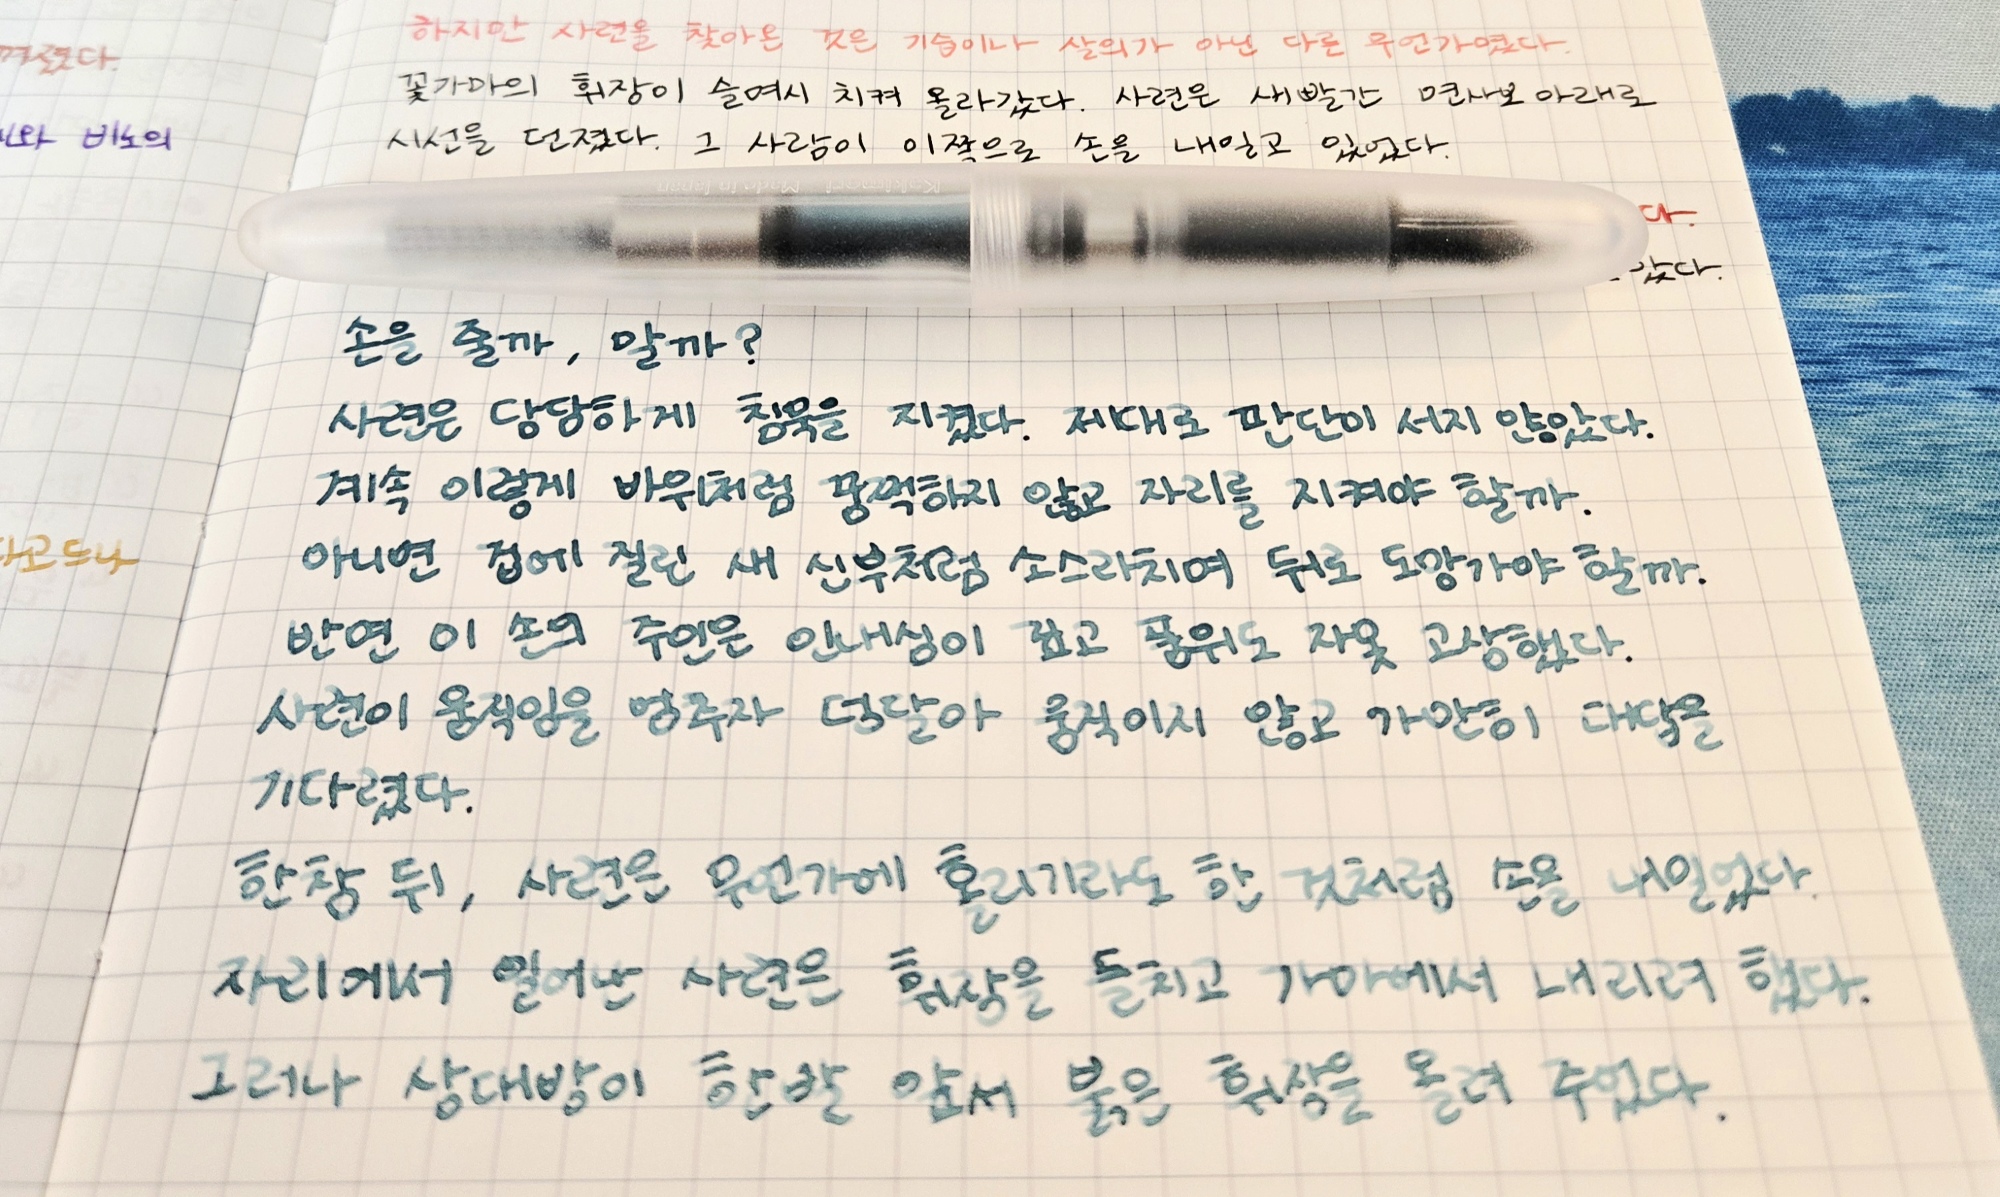 꺼졌다.
비노의
다고 드나
하지만 사련을 찾아온 것은 기습이나 살의가 아닌 다른 무언가였다.
꽃가마의 휘장이 슬며시 치켜 올라갔다. 사련은 새빨간 면사보 아래로
시선을 던졌다. 그 사람이 이쪽으로 손을 내밀고 있었다.
Kakimori Made in Japan
다.
았다.
손을 줄까, 말까?
사련은 당당하게 침묵을 지켰다. 제대로 판단이 서지 않았다.
계속 이렇게 바위처럼 꿈쩍하지 않고 자리를 지켜야 할까.
아니면 겁에 질린 새 신부처럼 소스라치며 뒤로 도망가야 할까.
반면 이 손의 주인은 인내심이 깊고 품위도 자못 고상했다.
사련이 움직임을 멈추자 덩달아 움직이지 않고 가만히 대답을
기다렸다.
한참 뒤, 사련은 무언가에 홀리기라도 한 것처럼 손을 내밀었다.
자리에서 일어난 사련은 휘장을 들치고 가마에서 내리려 했다.
그러나 상대방이 한발 앞서 붉은 휘장을 올려 주었다.